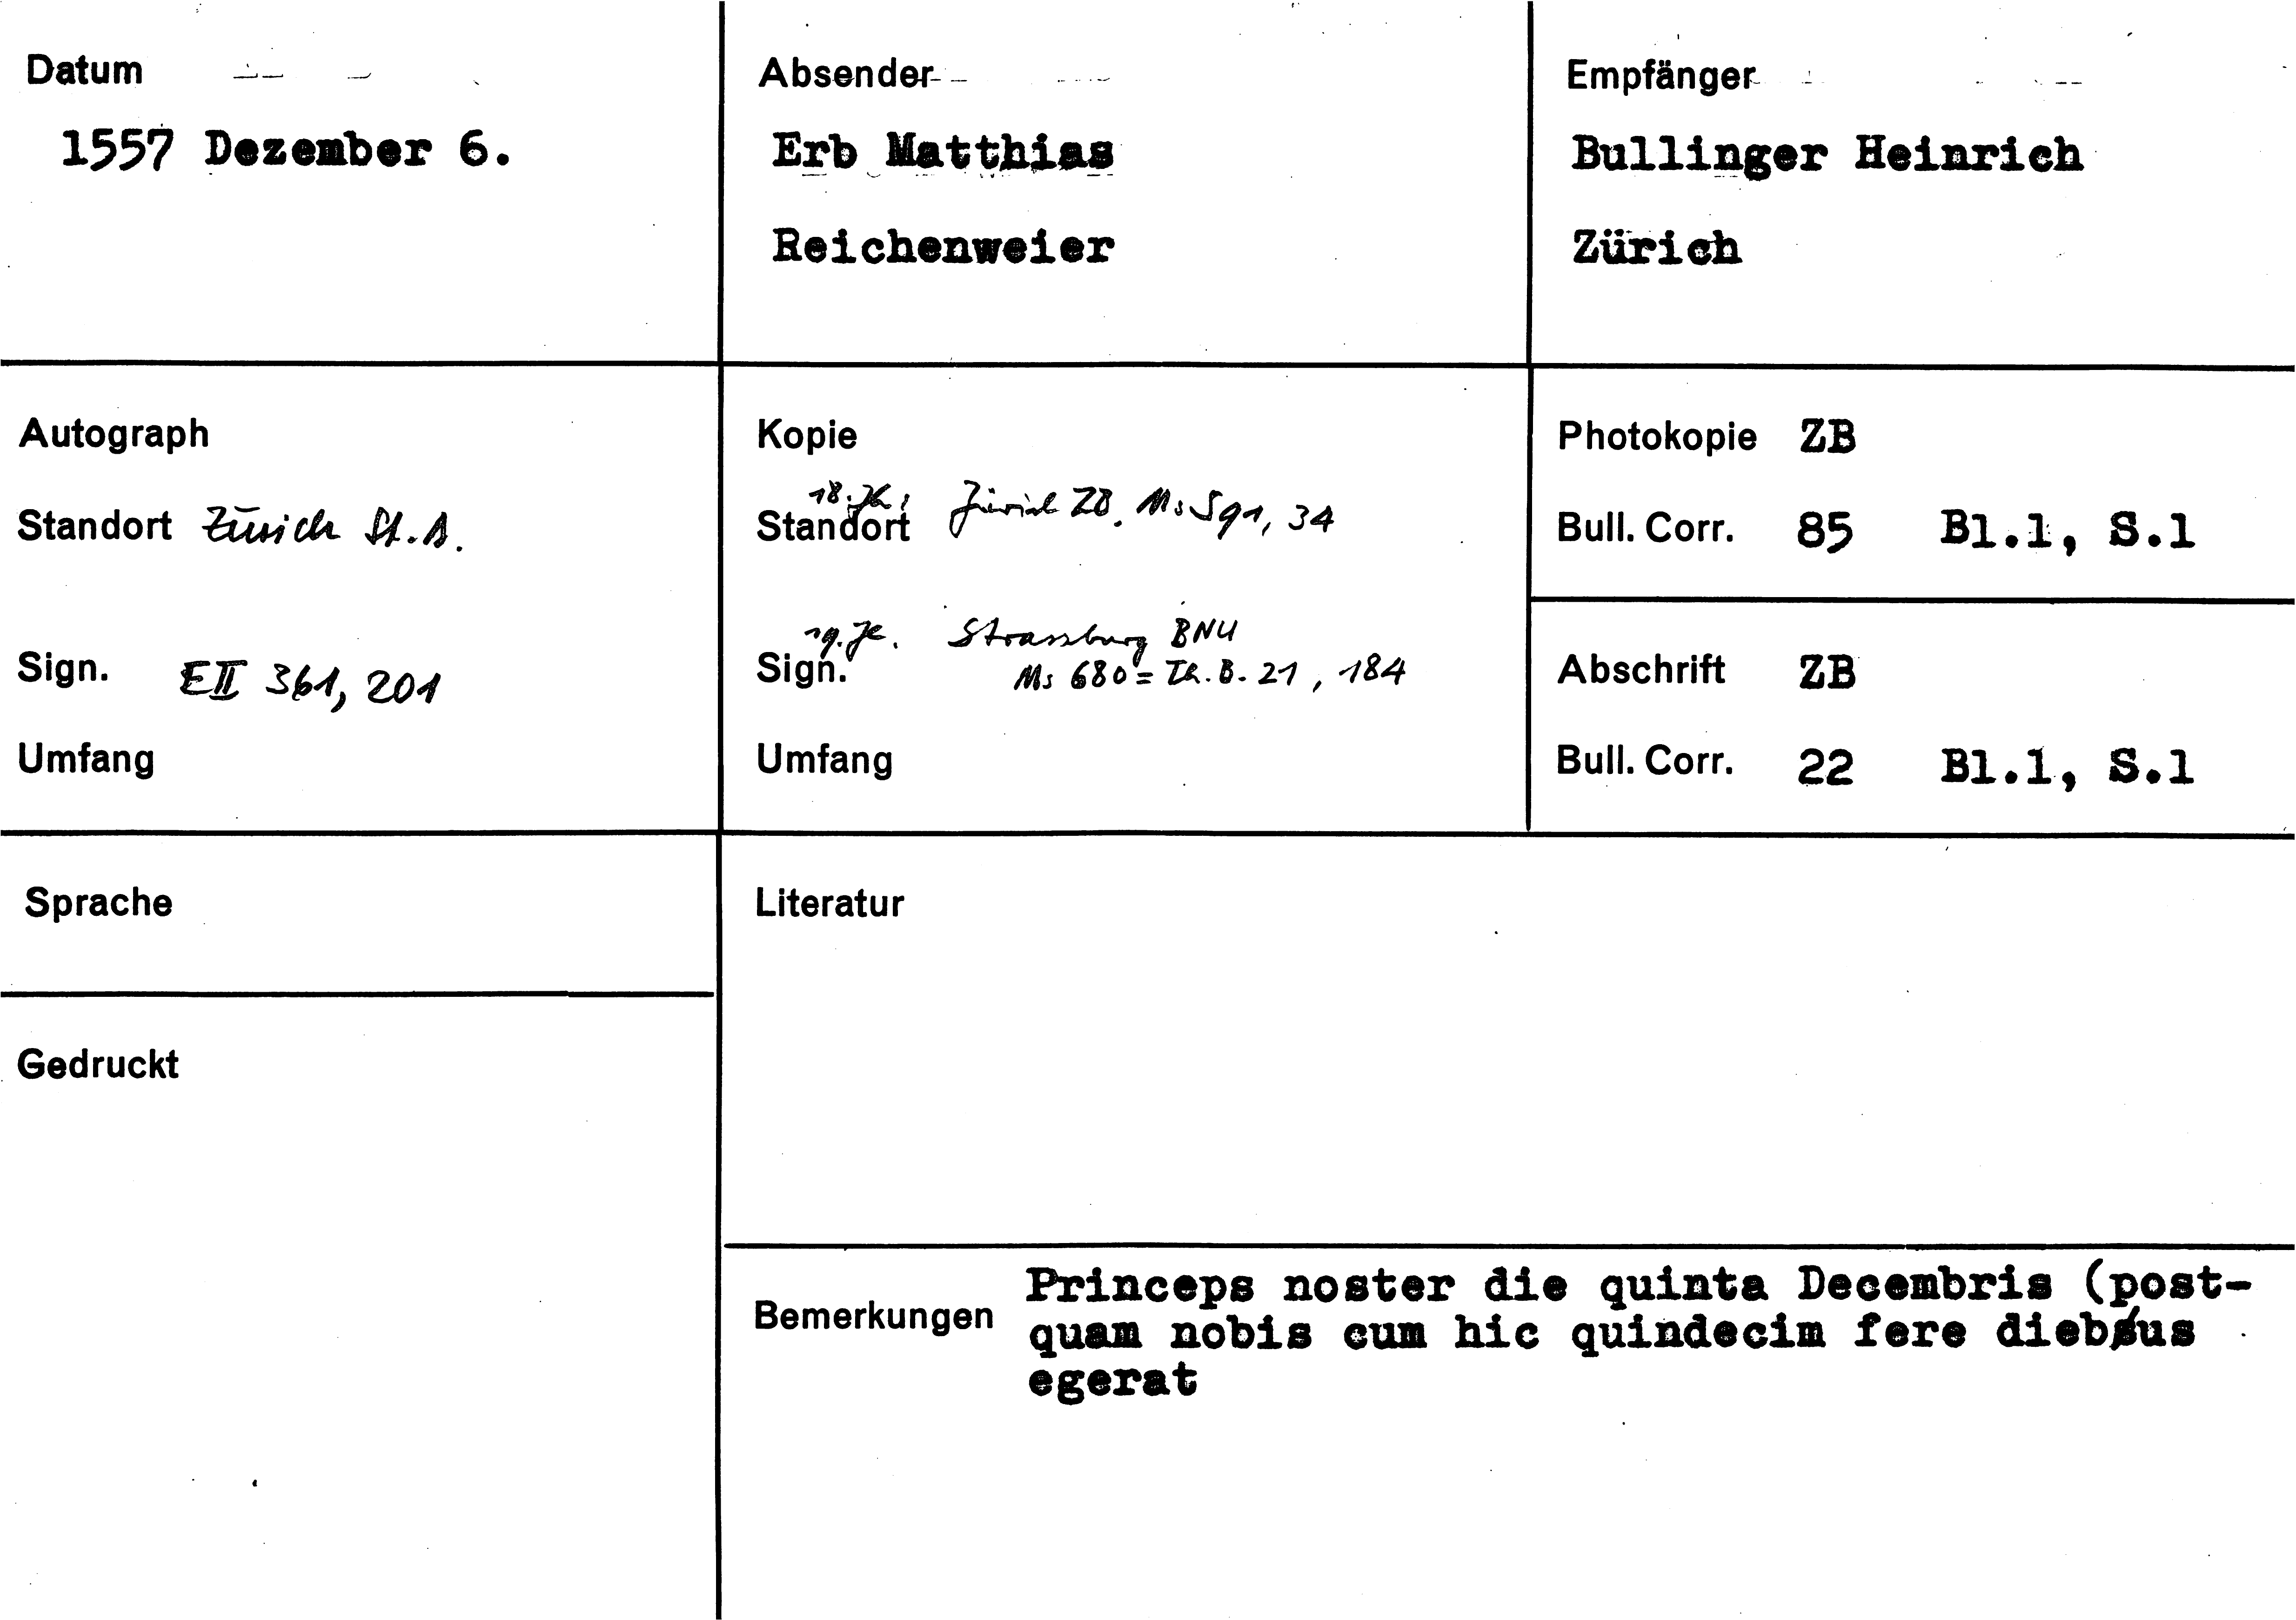 Datum
1557 Dezember 6.
Absender
Erb Matthias
Reichenweier
Empfänger
Bullinger Heinrich
Zürich
Autograph
Standort Zürich St.A.
Sign. EII 361, 201
Umfang
Kopie
18. Jh.: Zürich ZB, Ms S 91, 34
Standort
19. Jh. Strassburg BNU
Sign. Ms 680 = Th. B. 21, 184
Umfang
Photokopie ZB
Bull. Corr. 85 Bl.1, S.1
Abschrift ZB
Bull. Corr. 22 Bl.1, S.1
Sprache
Gedruckt
Literatur
Bemerkungen
Princeps noster die quinta Decembris (post-
quam nobis cum hic quindecim fere diebus
egerat